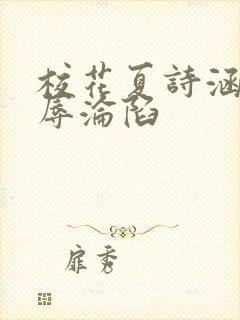 校花夏詩涵
辱淪陷
扉秀